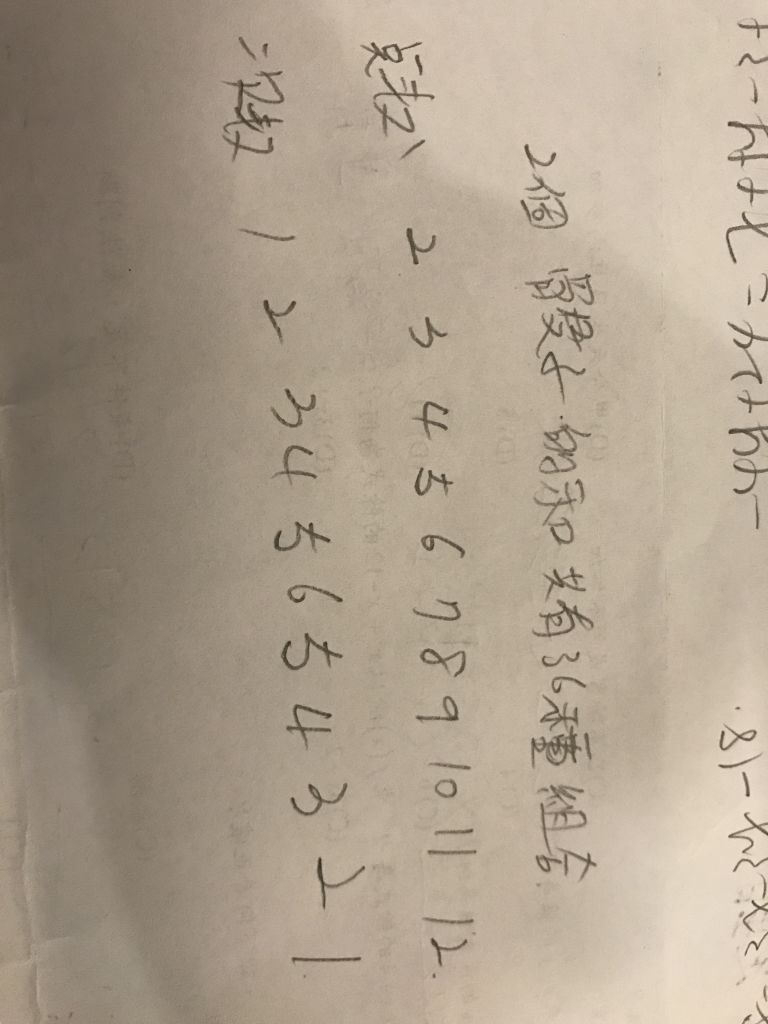 2個 骰子的和共有36種組合
点数 2 3 4 5 6 7 8 9 10 11 12.
次數 1 2 3 4 5 6 5 4 3 2 1